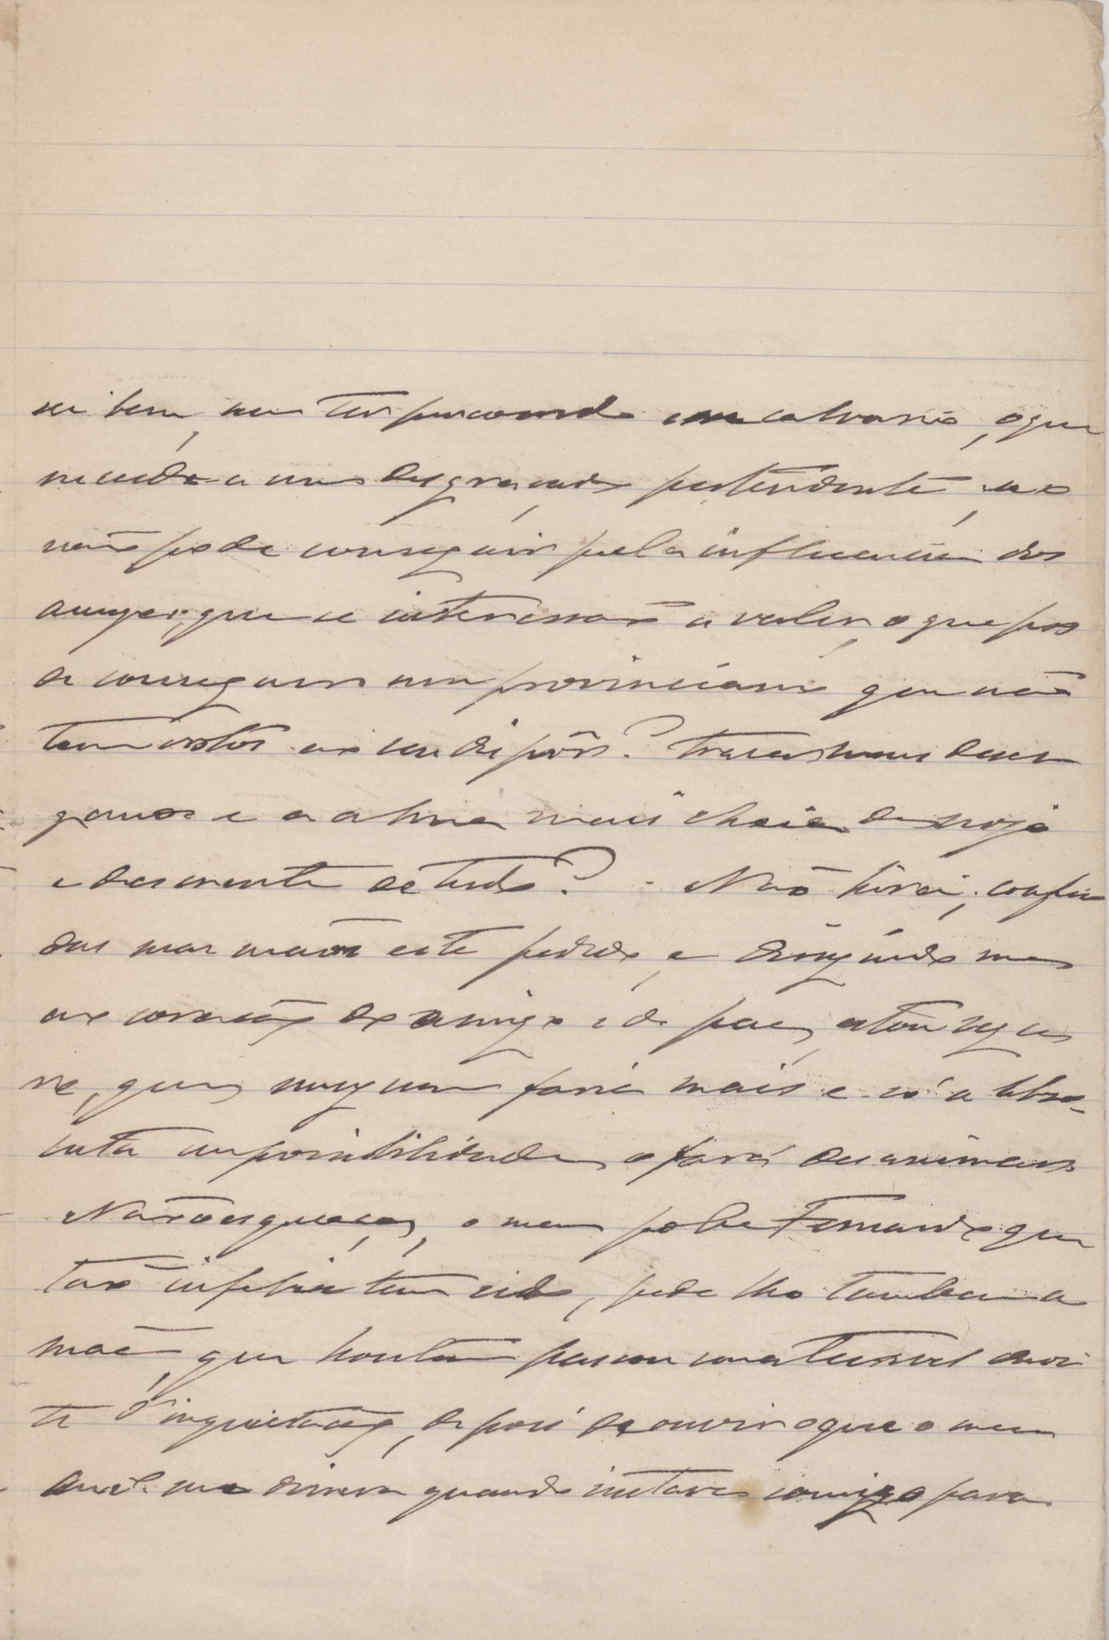 sei bem, sem ter percorrido um calvario, o que
succede a um desgraçado pertendente, se o
não pode conseguir pela influencia dos
amigos que se interessão a valer, o que po
de conseguir um provinciano que não
tem votos ao seu dispôr? trazer mais desen
ganos e a alma mais cheia de nojo
e descrente de tudo? - Não hirei, confio
das suas mãos este pedido, e dirigindo me
ao coração do amigo e do pae, estou segu
ro, que ninguem faria mais e só a abso-
luta impossibilidade o fará desanimar
Não esqueça, o meu pobre Fernando que
tão infeliz tem sido, pede lho tambem a
mãe, que hontem passou uma terrivel noi
te d'inquietação, depois de ouvir o que o meu
me dissera quando instava comigo para